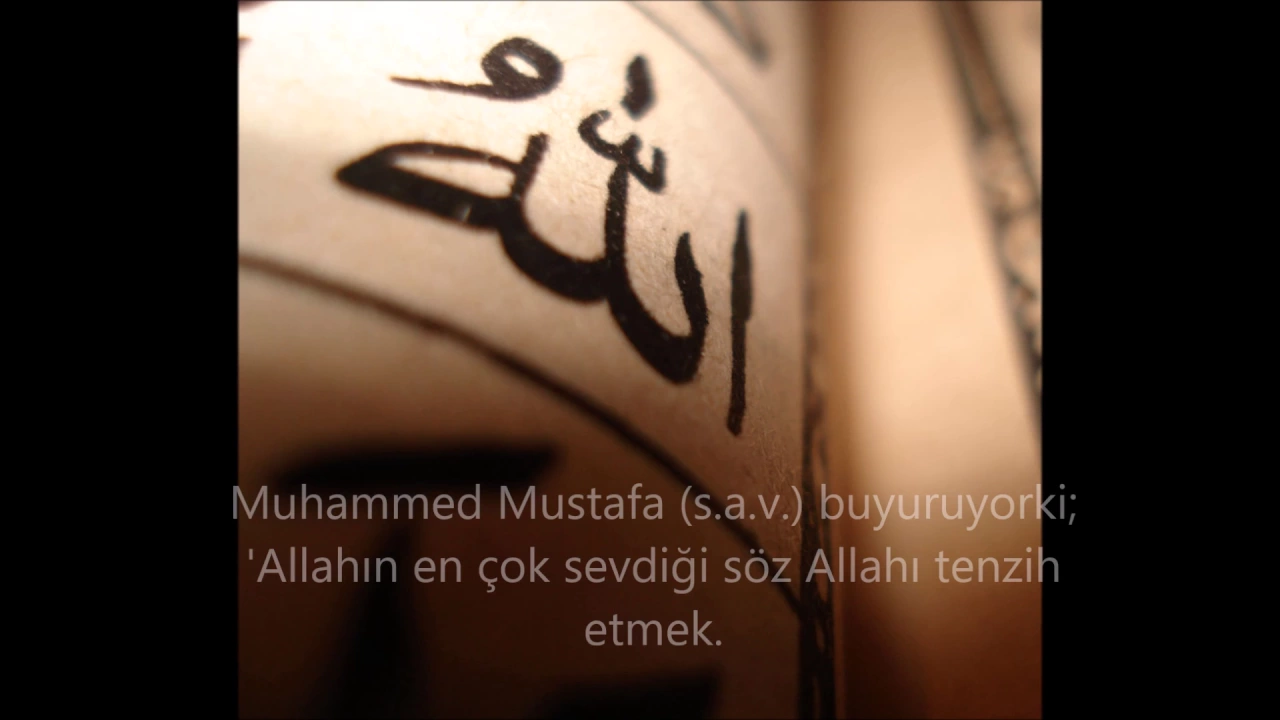 اللهُ
Muhammed Mustafa (s.a.v.) buyuruyorki;
'Allahın en çok sevdiği söz Allahı tenzih
etmek.